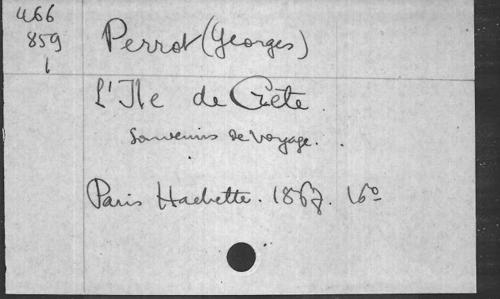 466
859
1
Perrot (Georges)
L'Ile de Crète.
Souvenirs de voyage.
Paris Hachette. 1867. 16º